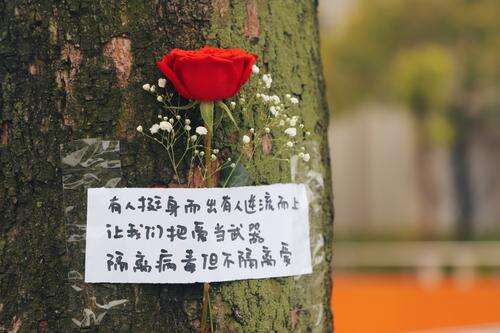 有人挺身而出有人逆流而上
让我们把爱当武器
隔离病毒但不隔离爱